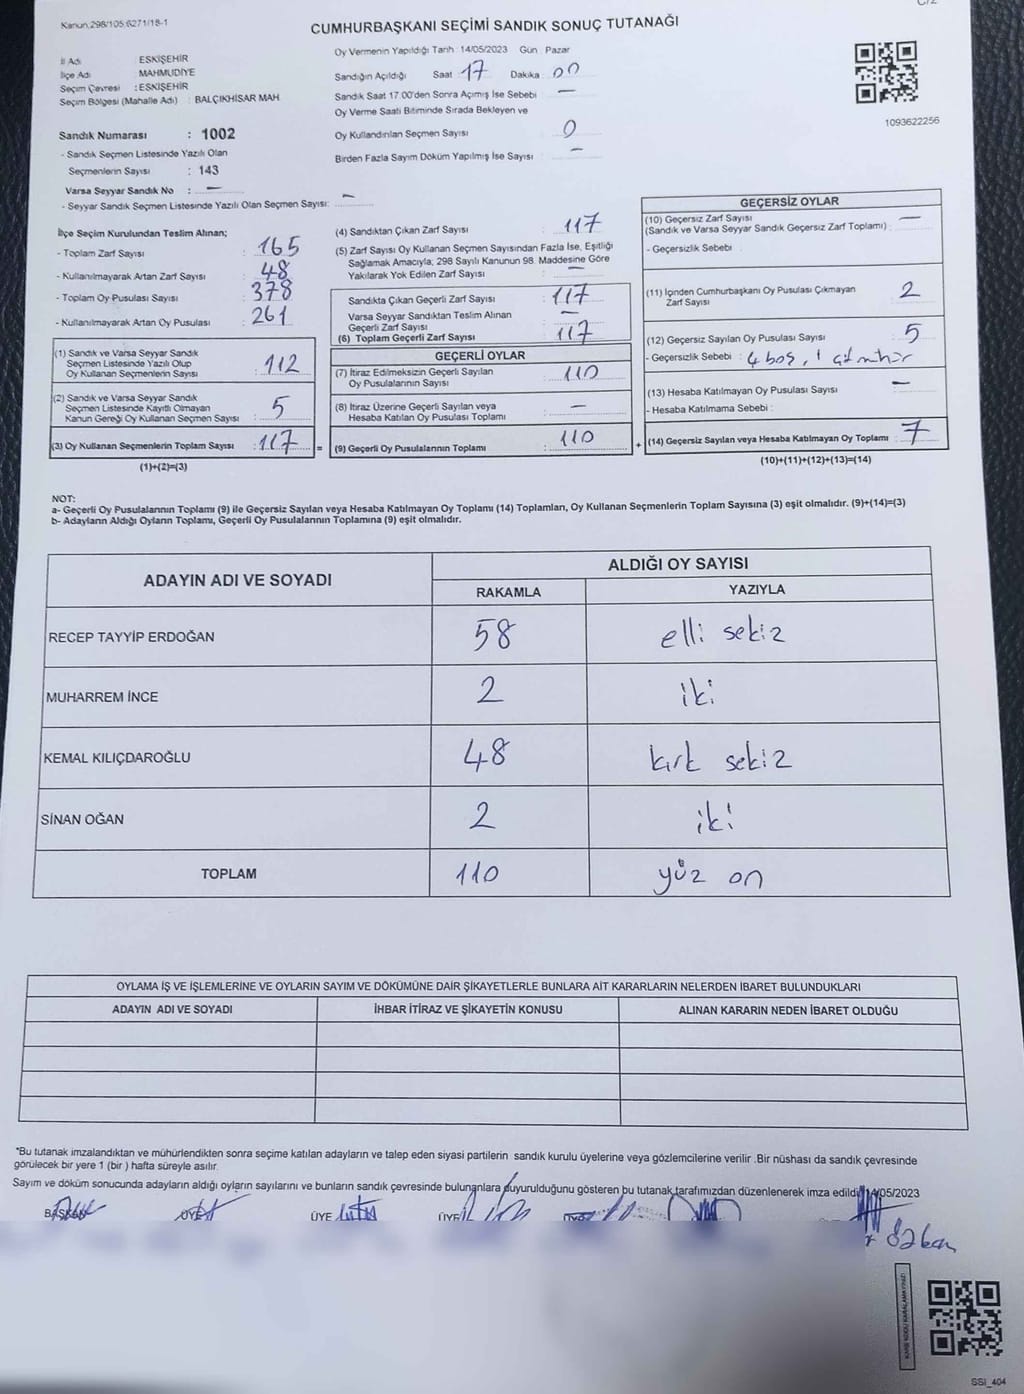 Kanun,298/105,6271/18-1
CUMHURBAŞKANI SEÇİMİ SANDIK SONUÇ TUTANAĞI
İl Adı ESKİŞEHİR
İlçe Adı MAHMUDİYE
Seçim Çevresi : ESKİŞEHİR
Seçim Bölgesi (Mahalle Adı) : BALÇIKHİSAR MAH
Sandık Numarası : 1002
- Sandık Seçmen Listesinde Yazılı Olan
Seçmenlerin Sayısı : 143
Varsa Seyyar Sandık No : —
- Seyyar Sandık Seçmen Listesinde Yazılı Olan Seçmen Sayısı: —
Oy Vermenin Yapıldığı Tarih : 14/05/2023 Gün : Pazar
Sandığın Açıldığı Saat : 17 Dakika : 00
Sandık Saat 17.00'den Sonra Açımış İse Sebebi —
Oy Verme Saati Bitiminde Sırada Bekleyen ve
Oy Kullandırılan Seçmen Sayısı 0
Birden Fazla Sayım Döküm Yapılmış İse Sayısı : —
1093622256
İlçe Seçim Kurulundan Teslim Alınan;
- Toplam Zarf Sayısı : 165
- Kullanılmayarak Artan Zarf Sayısı : 48
- Toplam Oy Pusulası Sayısı : 378
- Kullanılmayarak Artan Oy Pusulası : 261
(1) Sandık ve Varsa Seyyar Sandık
Seçmen Listesinde Yazılı Olup
Oy Kullanan Seçmenlerin Sayısı : 112
(2) Sandık ve Varsa Seyyar Sandık
Seçmen Listesinde Kayıtlı Olmayan
Kanun Gereği Oy Kullanan Seçmen Sayısı : 5
(3) Oy Kullanan Seçmenlerin Toplam Sayısı : 117 =
(1)+(2)=(3)
(4) Sandıktan Çıkan Zarf Sayısı : 117
(5) Zarf Sayısı Oy Kullanan Seçmen Sayısından Fazla İse, Eşitliği
Sağlamak Amacıyla; 298 Sayılı Kanunun 98. Maddesine Göre
Yakılarak Yok Edilen Zarf Sayısı : —
Sandıkta Çıkan Geçerli Zarf Sayısı : 117
Varsa Seyyar Sandıktan Teslim Alınan
Geçerli Zarf Sayısı : —
(6) Toplam Geçerli Zarf Sayısı : 117
GEÇERLİ OYLAR
(7) İtiraz Edilmeksizin Geçerli Sayılan
Oy Pusulalarının Sayısı : 110
(8) İtiraz Üzerine Geçerli Sayılan veya
Hesaba Katılan Oy Pusulası Toplamı : —
(9) Geçerli Oy Pusulalarının Toplamı : 110 +
GEÇERSİZ OYLAR
(10) Geçersiz Zarf Sayısı —
(Sandık ve Varsa Seyyar Sandık Geçersiz Zarf Toplamı) :
- Geçersizlik Sebebi :
(11) İçinden Cumhurbaşkanı Oy Pusulası Çıkmayan
Zarf Sayısı : 2
(12) Geçersiz Sayılan Oy Pusulası Sayısı : 5
- Geçersizlik Sebebi : 4 boş, 1 çift mühür
(13) Hesaba Katılmayan Oy Pusulası Sayısı : —
- Hesaba Katılmama Sebebi :
(14) Geçersiz Sayılan veya Hesaba Katılmayan Oy Toplamı : 7
(10)+(11)+(12)+(13)=(14)
NOT:
a- Geçerli Oy Pusulalarının Toplamı (9) ile Geçersiz Sayılan veya Hesaba Katılmayan Oy Toplamı (14) Toplamları, Oy Kullanan Seçmenlerin Toplam Sayısına (3) eşit olmalıdır. (9)+(14)=(3)
b- Adayların Aldığı Oyların Toplamı, Geçerli Oy Pusulalarının Toplamına (9) eşit olmalıdır.
ADAYIN ADI VE SOYADI ALDIĞI OY SAYISI
RAKAMLA YAZIYLA
RECEP TAYYİP ERDOĞAN 58 elli sekiz
MUHARREM İNCE 2 iki
KEMAL KILIÇDAROĞLU 48 kırk sekiz
SİNAN OĞAN 2 iki
TOPLAM 110 yüz on
OYLAMA İŞ VE İŞLEMLERİNE VE OYLARIN SAYIM VE DÖKÜMÜNE DAİR ŞİKAYETLERLE BUNLARA AİT KARARLARIN NELERDEN İBARET BULUNDUKLARI
ADAYIN ADI VE SOYADI İHBAR İTİRAZ VE ŞİKAYETİN KONUSU ALINAN KARARIN NEDEN İBARET OLDUĞU
*Bu tutanak imzalandıktan ve mühürlendikten sonra seçime katılan adayların ve talep eden siyasi partilerin sandık kurulu üyelerine veya gözlemcilerine verilir .Bir nüshası da sandık çevresinde
görülecek bir yere 1 (bir ) hafta süreyle asılır.
Sayım ve döküm sonucunda adayların aldığı oyların sayılarını ve bunların sandık çevresinde bulunanlara duyurulduğunu gösteren bu tutanak tarafımızdan düzenlenerek imza edildi. 14/05/2023
BAŞKAN ÜYE ÜYE ÜYE ÜYE
SSI_404